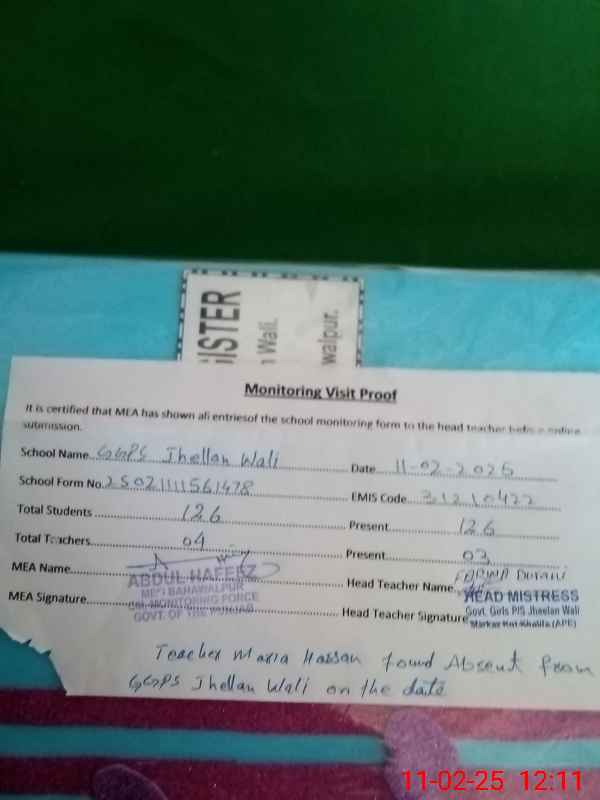 ISTER
Wali.
walpur.
Monitoring Visit Proof
It is certified that MEA has shown all entriesof the school monitoring form to the head teacher before online
submission.
School Name GGPS Jhellan Wali Date 11-02-2025
School Form No. 25021111561478 EMIS Code 31210422
Total Students 126 Present 126
Total Teachers 04 Present 03
MEA Name ABDUL HAFEEZ Head Teacher Name
MEA BAHAWALPUR
MONITORING FORCE
GOVT. OF THE PUNJAB
HEAD MISTRESS
Govt. Girls P/S Jheelan Wali
Markaz Kot Khalifa (APE)
MEA Signature Head Teacher Signature
Teacher Maria Hassan found Absent from
GGPS Jhellan Wali on the date
11-02-25 12:11